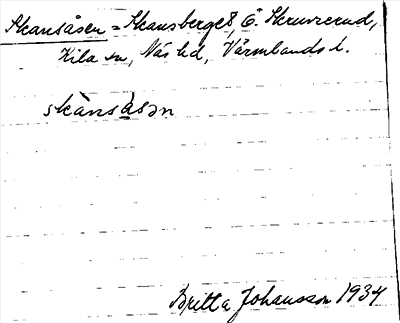 Skansåsen = Skansberget, Ö. Skruvrerud,
Kila sn, Näs hd, Värmlands l.
skànsåsən
Britta Johansson 1934